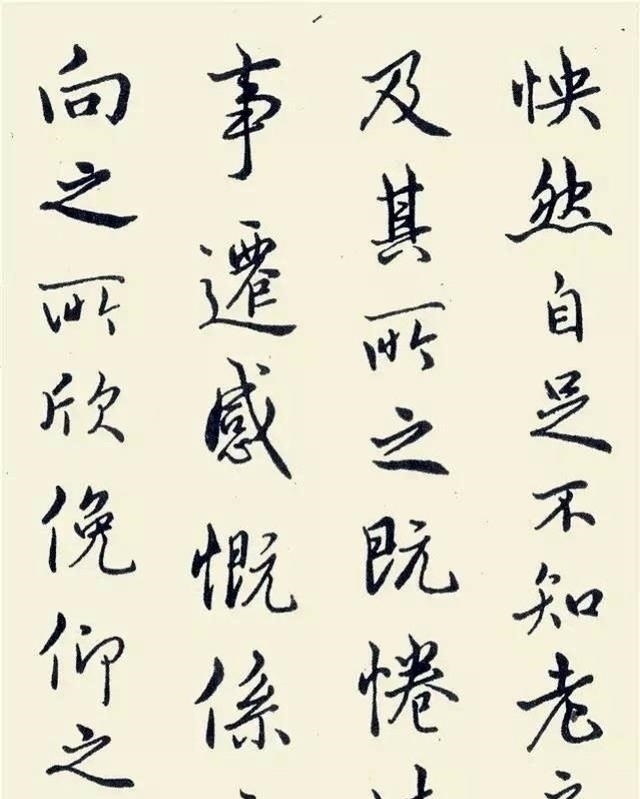 怏然自足不知老
及其所之既惓
事遷感慨係
向之所欣俛仰之